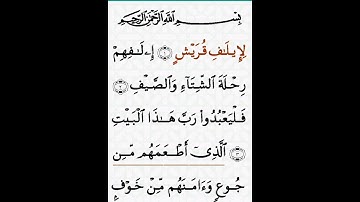 بِسْمِ ٱللَّهِ ٱلرَّحْمَٰنِ ٱلرَّحِيمِ
لِإِيلَٰفِ قُرَيْشٍ ۝١ إِۦلَٰفِهِمْ
رِحْلَةَ ٱلشِّتَآءِ وَٱلصَّيْفِ ۝٢
فَلْيَعْبُدُوا۟ رَبَّ هَٰذَا ٱلْبَيْتِ
۝٣ ٱلَّذِىٓ أَطْعَمَهُم مِّن
جُوعٍ وَءَامَنَهُم مِّنْ خَوْفٍۭ